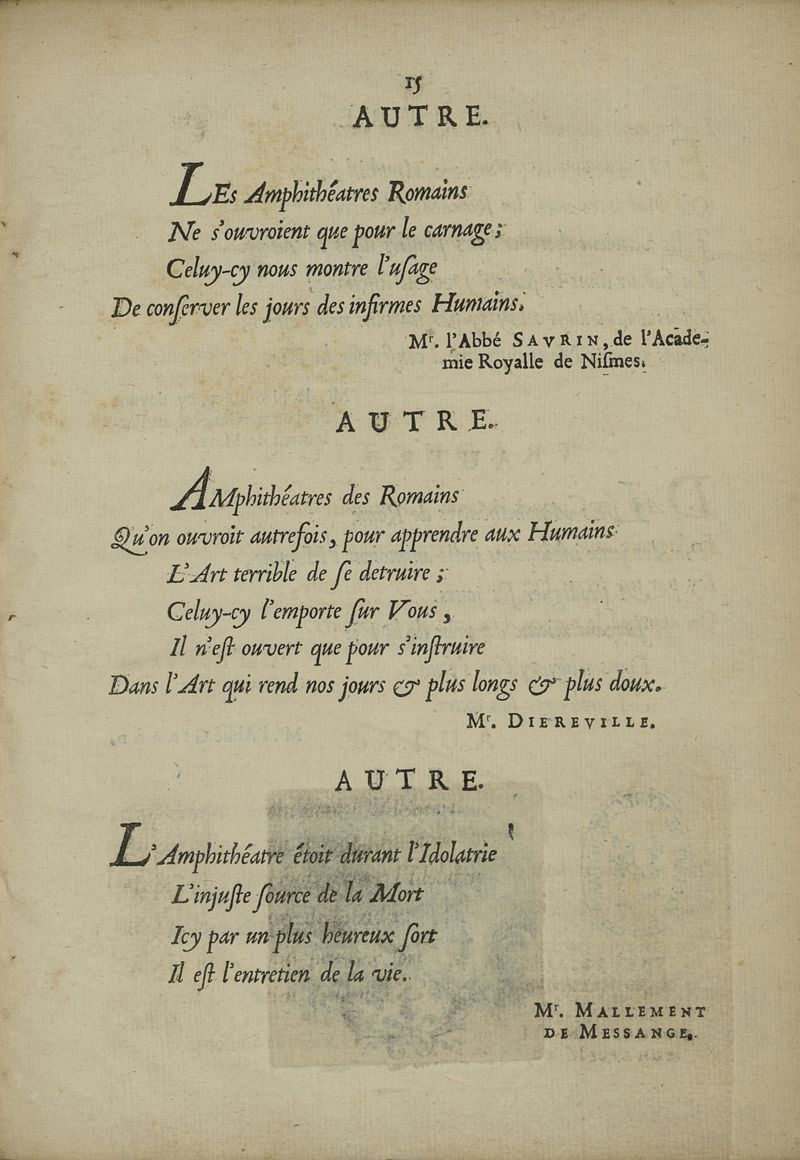 15
AUTRE.
LEs Amphithéatres Romains
Ne s'ouvroient que pour le carnage;
Celuy-cy nous montre l'uſage
De conſerver les jours des infirmes Humains.
Mr. l'Abbé SAVRIN, de l'Acade-
mie Royalle de Niſmes.
AUTRE.
AMphithéatres des Romains
Qu'on ouvroit autrefois, pour apprendre aux Humains
L'Art terrible de ſe detruire;
Celuy-cy l'emporte ſur Vous,
Il n'eſt ouvert que pour s'inſtruire
Dans l'Art qui rend nos jours & plus longs & plus doux.
Mr. DIEREVILLE.
AUTRE.
L'Amphithéatre étoit durant l'Idolatrie
L'injuſte ſource de la Mort
Icy par un plus heureux ſort
Il eſt l'entretien de la vie.
Mr. MALLEMENT
DE MESSANGE.